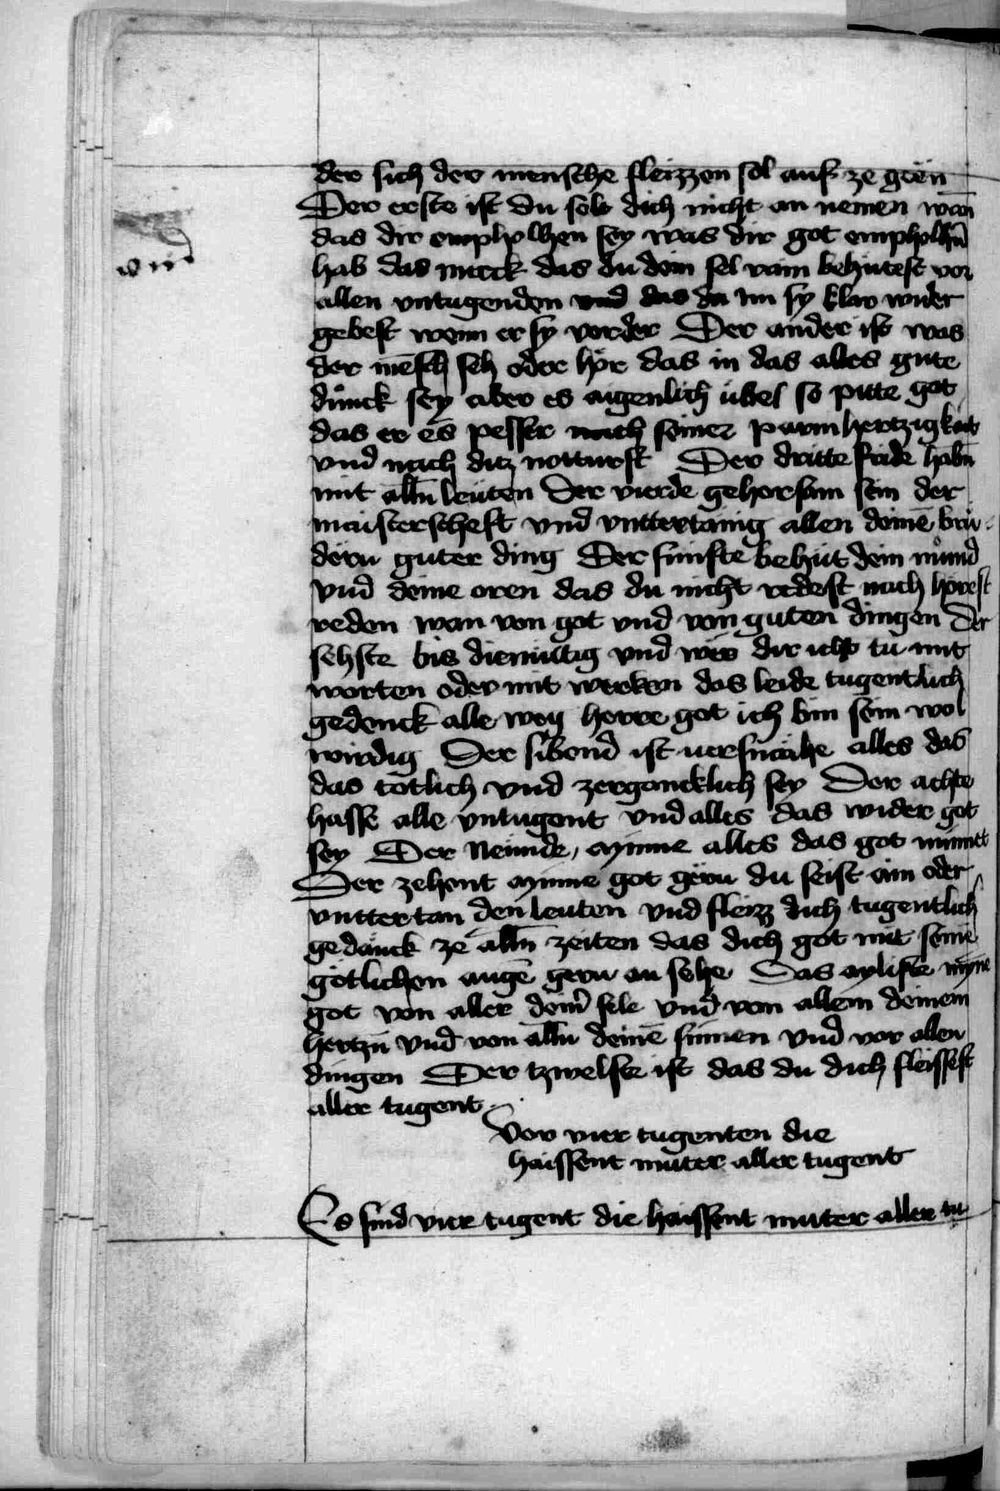 der sich der mensche fleizzen sol auf ze gēn
Der erste ist du solt dich nicht an nemen wan
das dir empholhen sey was dir got empholhn̄
hab das merck das du dein sel rain behutest vor
allen vntugenden vnd das du im sy klar wider
gebest wenn er sy vorder Der ander ist was
der mēsch seh oder hör das in das alles gute
dunck sey aber es aigenlich übel so pitte got
das er es pesser nach seiner parmhertzigkait
vnd nach ditz notturft Der dritte fride habn̄
mit alln̄ leuten Der vierde gehorsam sein der
maisterscheft vnd vnttertänig allen deinē brü-
dern guter ding Der funfte behüt dein mund
vnd deine oren das du nicht redest noch hörest
reden wan von got vnd von guten dingen Der
sehste bis diemütig vnd wer dir icht tü mit
worten oder mit werken das leide tugentlich
gedenck alle weg herre got ich bin sein wol
wirdig Der sibend ist versmähe alles das
das tötlich vnd zergancklich sey Der achte
hasse alle vntugent vnd alles das wider got
sey Der Neunde, mynne alles das got minnet
Der zehent mynne got gern du seist ain oder
vnttertan den leuten vnd fleizz dich tugentlich
gedanck ze alln̄ zeiten das dich got mit seinē
götlichen augē gern an sehe Das aylifte myne
got von aller deinr̄ sele vnd von allem deinem
hertzn̄ vnd von alln̄ deinē sinnen vnd vor allen
dingen Der tzwelfte ist das du dich fleissest
aller tugent
Von vier tugenten die
haissent muter aller tugent
Es sind vier tugent die haissent muter aller tu